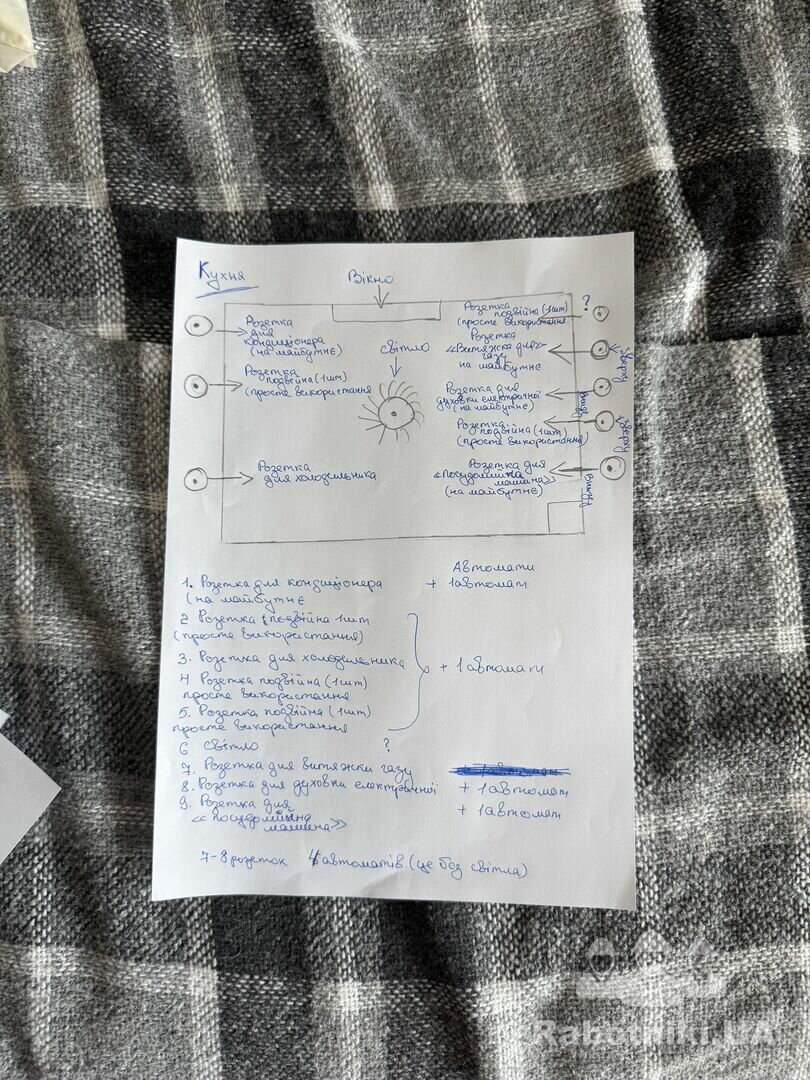 Кухня
Вікно
Розетка
для
кондиціонера
(на майбутнє)
Розетка
подвійна (1шт)
(просте використання
Розетка
для холодильника
світло
Розетка
подвійна (1шт)
(просте використання.
?
Розетка
«Витяжка для»
газу
на майбутнє
зверху
Розетка для
духовки електричної
(на майбутнє)
внизу
Розетка
подвійна (1шт)
(просте використання)
зверху
Розетка для
«Посудомийна
машина»
(на майбутнє)
внизу
Автомати
1. Розетка для кондиціонера + 1 автомат
(на майбутнє
2 Розетка подвійна 1шт
(просте використання)
3. Розетка для холодильника + 1 автомат
4 Розетка подвійна (1шт)
просте використання
5. Розетка подвійна (1шт)
просте використання
6 світло ?
7. Розетка для витяжки газу
8. Розетка для духовки електричної + 1 автомат
9. Розетка для + 1 автомат
«Посудомийна
машина»
7-8 розеток 4 автоматів (це без світла)
Rabotniki.UA